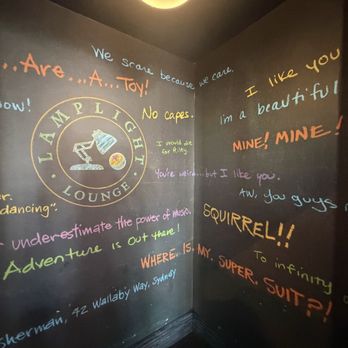 We scare because we care.
...Are....A...Toy!
I like you
No capes.
I'm a beautiful
now!
MINE! MINE!
LAMPLIGHT LOUNGE
I would die
for Riley
You're weird...but I like you.
AW, you guys
dancing".
SQUIRREL!!
underestimate the power of music.
Adventure is Out there!
WHERE. IS. MY. SUPER. SUIT?!
To infinity
Sherman, 42 Wallaby Way, Sydney